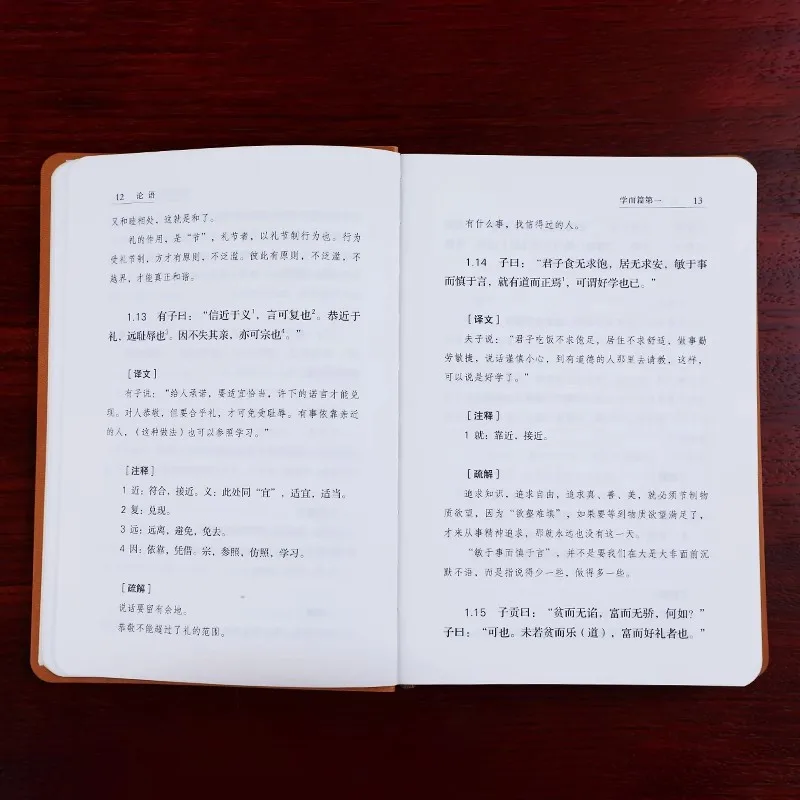 12 论语
又和睦相处，这就是和了。
礼的作用，是“节”，礼节者，以礼节制行为也。行为
受礼节制，方才有原则，不泛滥。彼此有原则，不泛滥，不
越界，才能真正和谐。
1.13 有子曰：“信近于义¹，言可复也²。恭近于
礼，远耻辱也³。因不失其亲，亦可宗也⁴。”
［译文］
有子说：“给人承诺，要适宜恰当，许下的诺言才能兑
现。对人恭敬，但要合乎礼，才可免受耻辱。有事依靠亲近
的人，（这种做法）也可以参照学习。”
［注释］
1 近：符合，接近。义：此处同“宜”，适宜，适当。
2 复：兑现。
3 远：远离，避免，免去。
4 因：依靠，凭借。宗，参照，仿照，学习。
［疏解］
说话要留有余地。
恭敬不能越过了礼的范围。
学而篇第一 13
有什么事，找信得过的人。
1.14 子曰：“君子食无求饱，居无求安，敏于事
而慎于言，就有道而正焉¹，可谓好学也已。”
［译文］
夫子说：“君子吃饭不求饱足，居住不求舒适，做事勤
劳敏捷，说话谨慎小心，到有道德的人那里去请教，这样，
可以说是好学了。”
［注释］
1 就：靠近，接近。
［疏解］
追求知识，追求自由，追求真、善、美，就必须节制物
质欲望，因为“欲壑难填”，如果要等到物质欲望满足了，
才来从事精神追求，那就永远也没有这一天。
“敏于事而慎于言”，并不是要我们在大是大非面前沉
默不语，而是指说得少一些，做得多一些。
1.15 子贡曰：“贫而无谄，富而无骄，何如？”
子曰：“可也。未若贫而乐（道），富而好礼者也。”